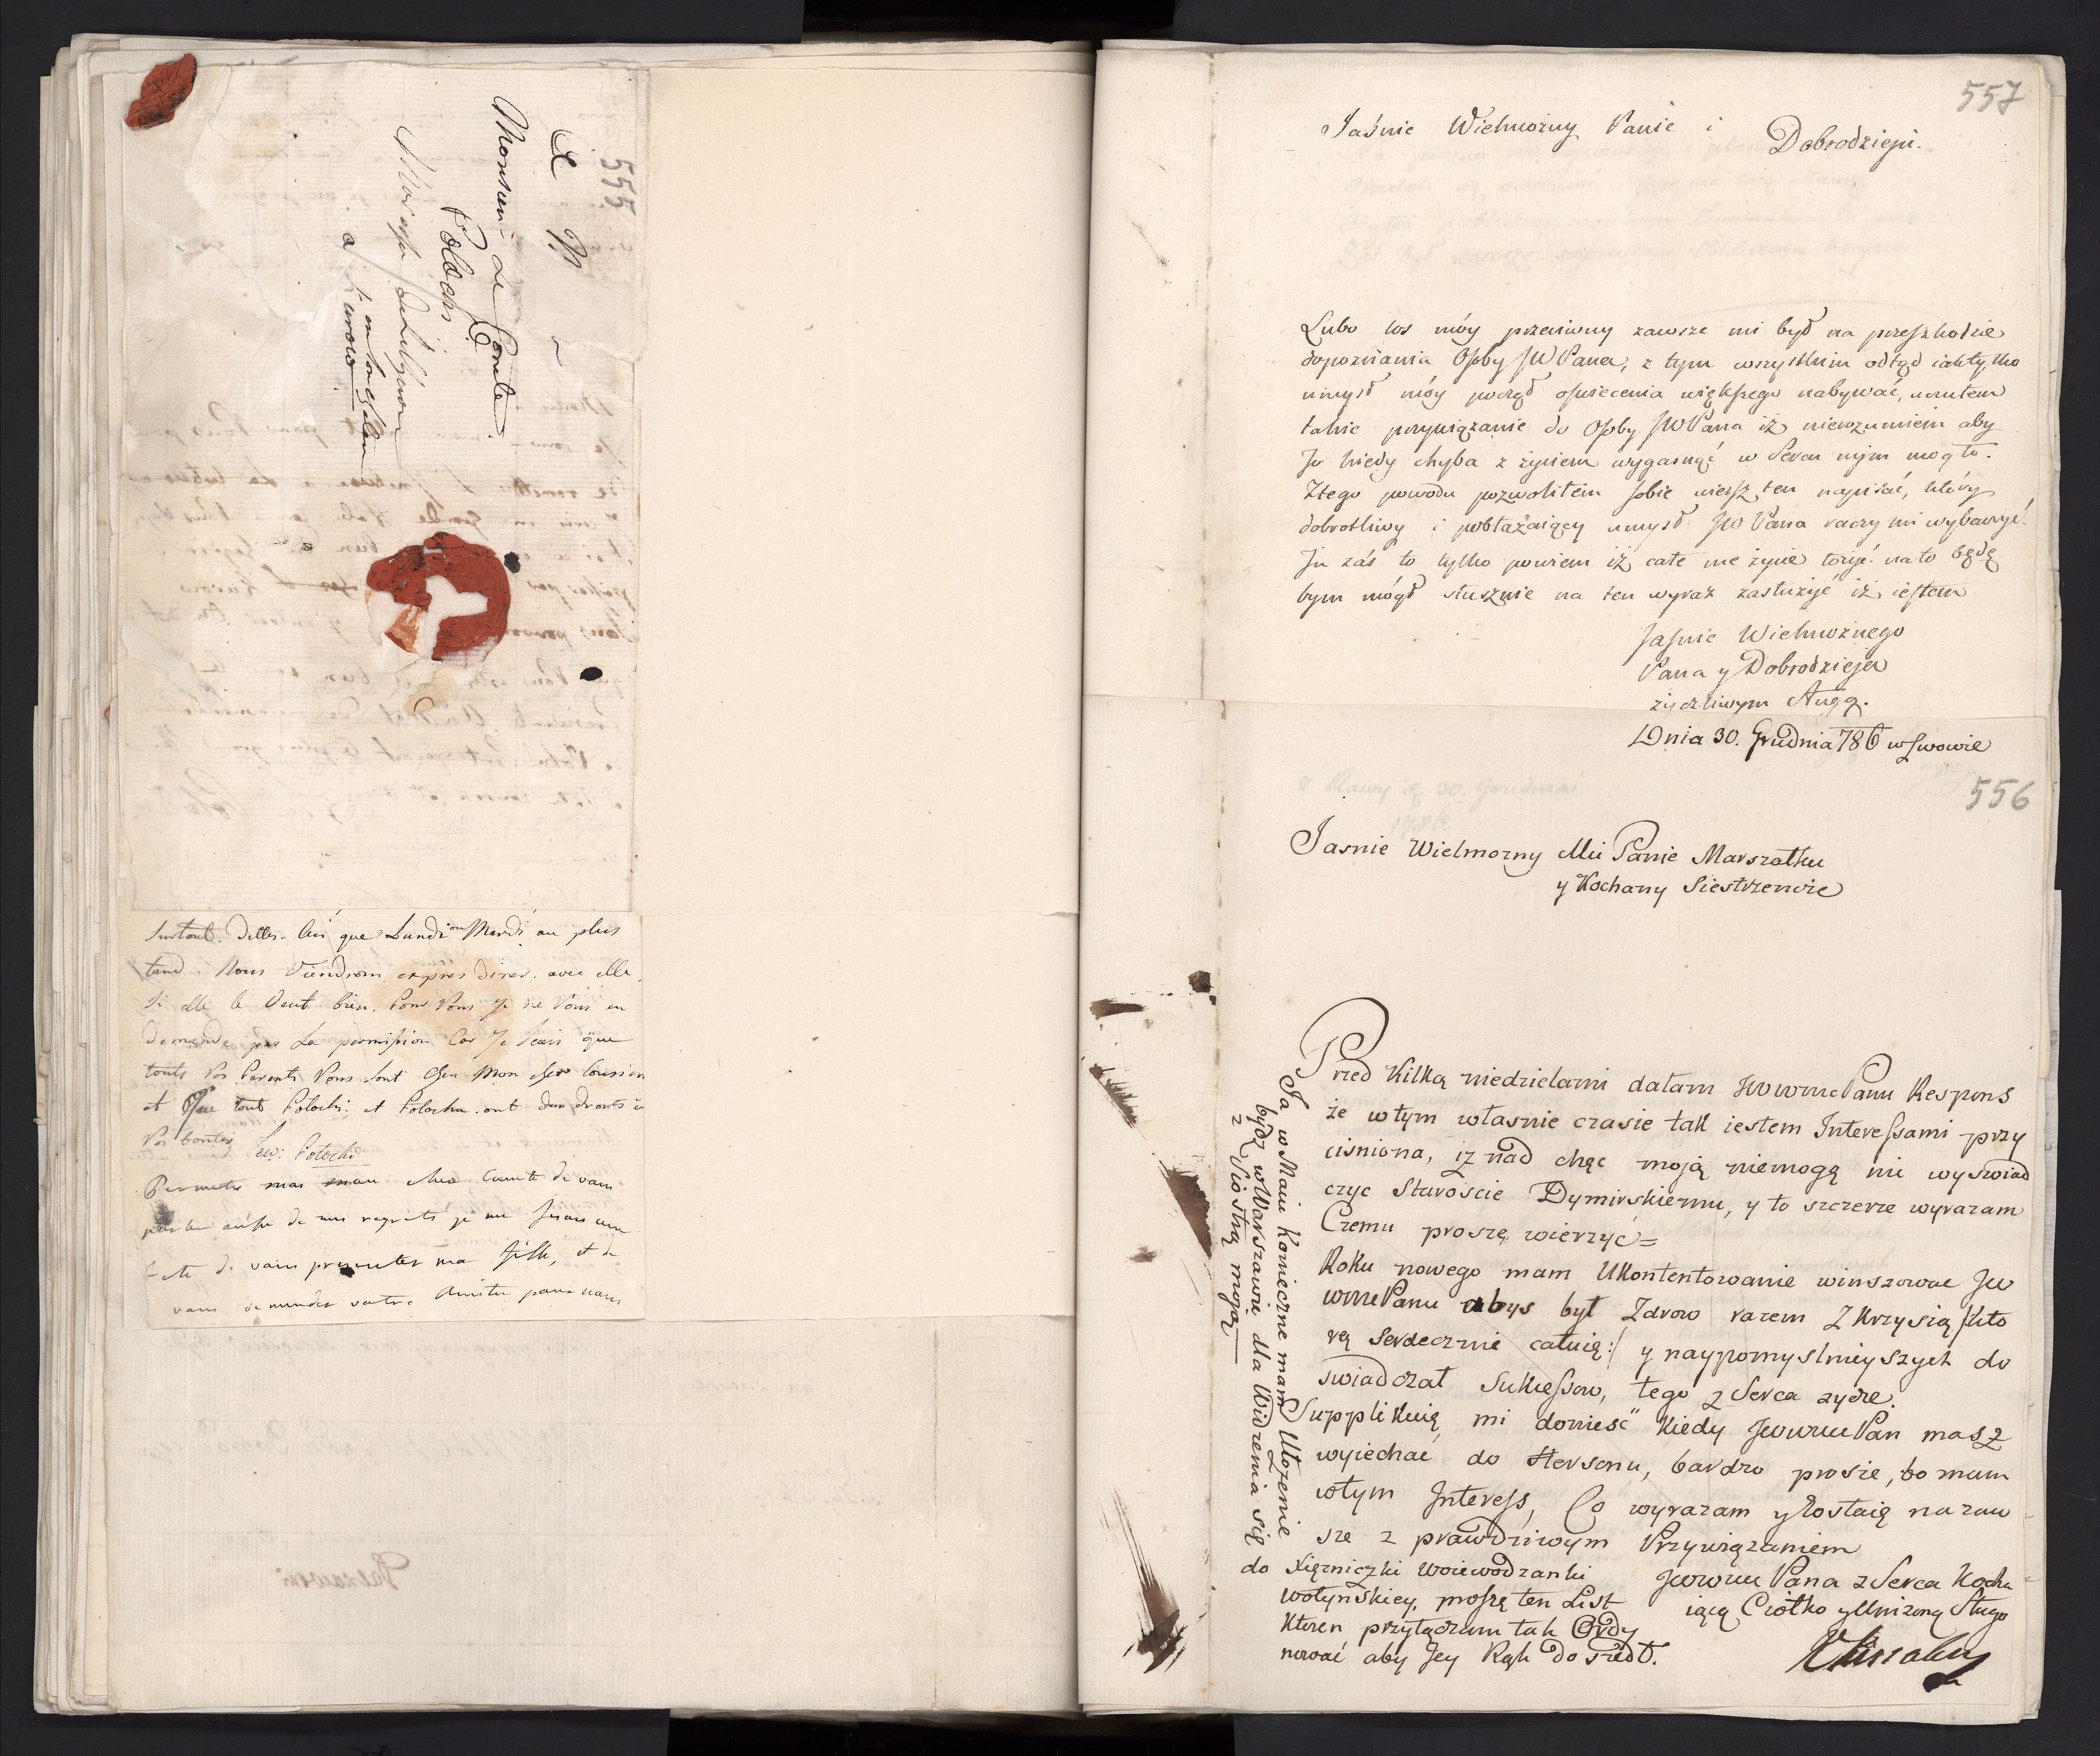 555
A M
Monsieur Le Comte
Potocki
a Kurow
Surtout. Dittes-lui que Lundi ou Mardi au plus
tard. Nous Viendrons expres diner. avec elle.
Si elle le Veut bien. Pour Vous Je ne Vous en
demande pas La permission Car Je scais que
touts Vos Parents Vous sont Cher Mon cher Cousin
et Que tout Potocki: et Potocka. ont des droits à
Vos bontés Sew: Potocki
Permettes moi mon cher Comte de vous
parler aussi de mes regrets je me faisais une
fete de vous presenter ma fille, et de
vous demander votre Amitié pour nous
557
Jaśnie Wielmożny Panie i Dobrodzieju.
Lubo los móy przeciwny zawsze mi był na przeszkodzie
dopoznania Osoby JW Pana, z tym wszystkim odtąd iak tylko
umysł móy począł oświecenia większego nabywać, uczułem
takie przywiązanie do Osoby JWPana iż nierozumiem aby
To kiedy chyba z życiem wygasnąć w Sercu mym mogło.
Ztego powodu pozwoliłem sobie wiersz ten napisać, który
dobrotliwy i pobłażaiący umysł JW Pana raczy mi wybaczyć.
Ja zaś to tylko powiem iż całe me życie łożyć na to będę
bym mógł słusznie na ten wyraz zasłużyć iż iestem
Jaśnie Wielmożnego
Pana y Dobrodzieja
życzliwym Sługą.
Dnia 30. Grudnia 786 w Lwowie
556
Jasnie Wielmozny Mci Panie Marszałku
y Kochany Siestrzencie
Przed Kilką niedzielami dałam JWWmcPanu Respons
że wtym własnie czasie tak iestem Interessami przy
cisniona, iz nad chęc moją niemogę nic wyswiad
czyc Staroscie Dymirskiemu, y to szczerze wyrazam
Czemu proszę wierzyć=
Roku nowego mam Ukontentowanie winszowac JW
WmcPanu abys był Zdrow razem Z Krzysią /: Kto
rą Serdecznie całuię :/ y naypomyslnieyszych do
swiadczał Sukcessow, tego z Serca zycze.
Supplikuię mi doniesć Kiedy JWWmcPan masz
wyiechać do Hersonu, bardzo prosze, bo mam
wtym Interess, Co wyrazam y Zostaię na zaw
sze z prawdziwym Przywiązaniem
JWWmc Pana z Serca Kocha
iącą Ciotko y Unizoną Sługo
do Xięzniczki Woiewodzanki
wołynskiey, proszę ten List
Ktoren przyłączam tak Ordy
nować aby Jey Rąk doszedł.
Ja w Maiu Koniecznie mam Ułozenie
bydz w Warszawie dla Widzenia się
z Siostrą moją